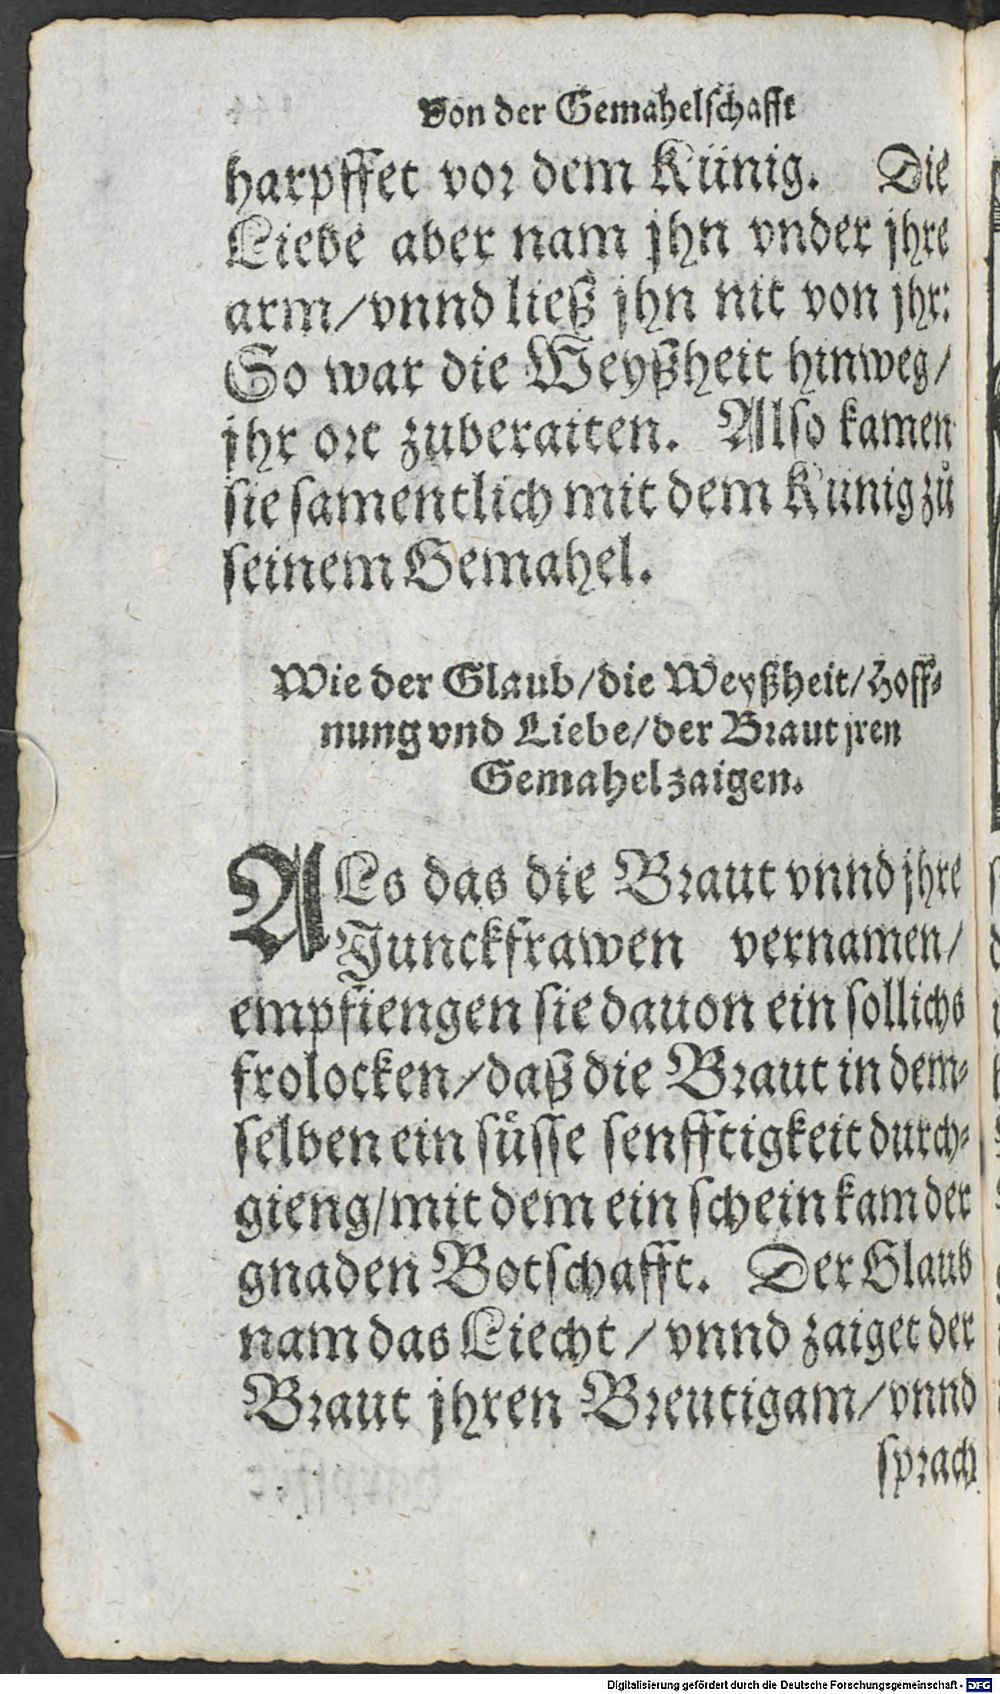 Von der Gemahelschafft
harpffet vor dem Künig. Die
Liebe aber nam jhn vnder jhre
arm/vnnd ließ jhn nit von jhr:
So war die Weyßheit hinweg/
jhr ort zuberaiten. Also kamen
sie samentlich mit dem Künig zů
seinem Gemahel.
Wie der Glaub/die Weyßheit/Hoff-
nung vnd Liebe/der Braut jren
Gemahel zaigen.
ALs das die Braut vnnd jhre
Junckfrawen vernamen/
empfiengen sie dauon ein sollichs
frolocken/daß die Braut in dem-
selben ein süsse senfftigkeit durch-
gieng/mit dem ein schein kam der
gnaden Botschafft. Der Glaub
nam das Liecht/vnnd zaiget der
Braut jhren Breutigam/vnnd
sprach
Digitalisierung gefördert durch die Deutsche Forschungsgemeinschaft - DFG